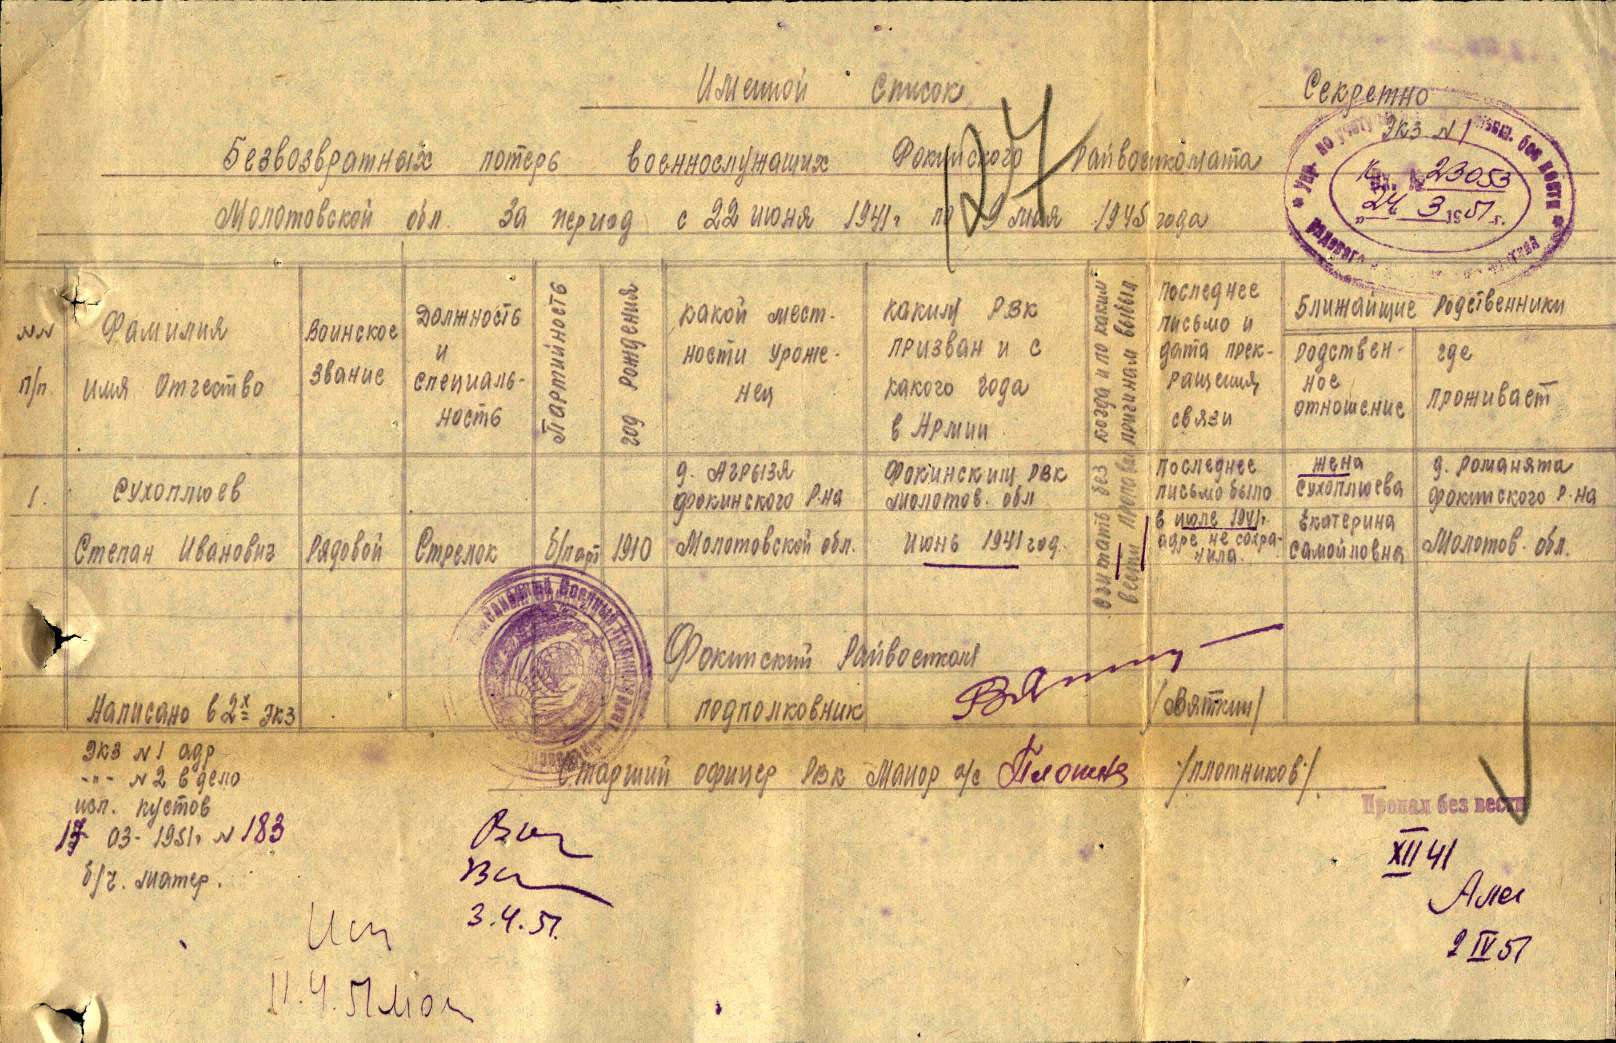 Именной список
Секретно
Экз N 1
Безвозвратных потерь военнослужащих Фокинского Райвоенкомата
Молотовской обл. За период с 22 июня 1941г по 9 мая 1945 года
127
Упр. по учету без вести
Вх. № 23053
"24" 3 1951 г.
рядового
NN п/п.
Фамилия имя Отчество
Воинское звание
Должность и специальность
Партийность
год рождения
какой мест-
ности уроже-
нец
каким РВК
призван и с
какого года
в Армии
когда и по каким причинам выбыл
Последнее
письмо и
дата прек-
ращения
связи
Ближайшие Родственники
Родствен-
ное
отношение
где
проживает
1.
Сухоплюев
Степан Иванович
Рядовой
Стрелок
б/парт
1910
д. Агрызя
Фокинского Р-на
Молотовской обл.
Фокинским РВК
Молотов. обл
Июнь 1941 год.
Считать без вести пропавш
Последнее
письмо было
в июле 1941г.
адре не сохра-
нила.
жена
Сухоплюева
Екатерина
Самойловна
д. Романята
Фокинского Р-на
Молотов. обл.
Фокинский Райвоенком
подполковник
/Вяткин/
Старший офицер РВК Майор а/с
/Плотников/
Написано в 2х экз
Экз N 1 адр
-"- N 2 в дело
исп. Кустов
17 03-1951г N 183
б/ч. матер.
3.4.51.
11.4.51
Пропал без вести
XII 41
2 IV 51